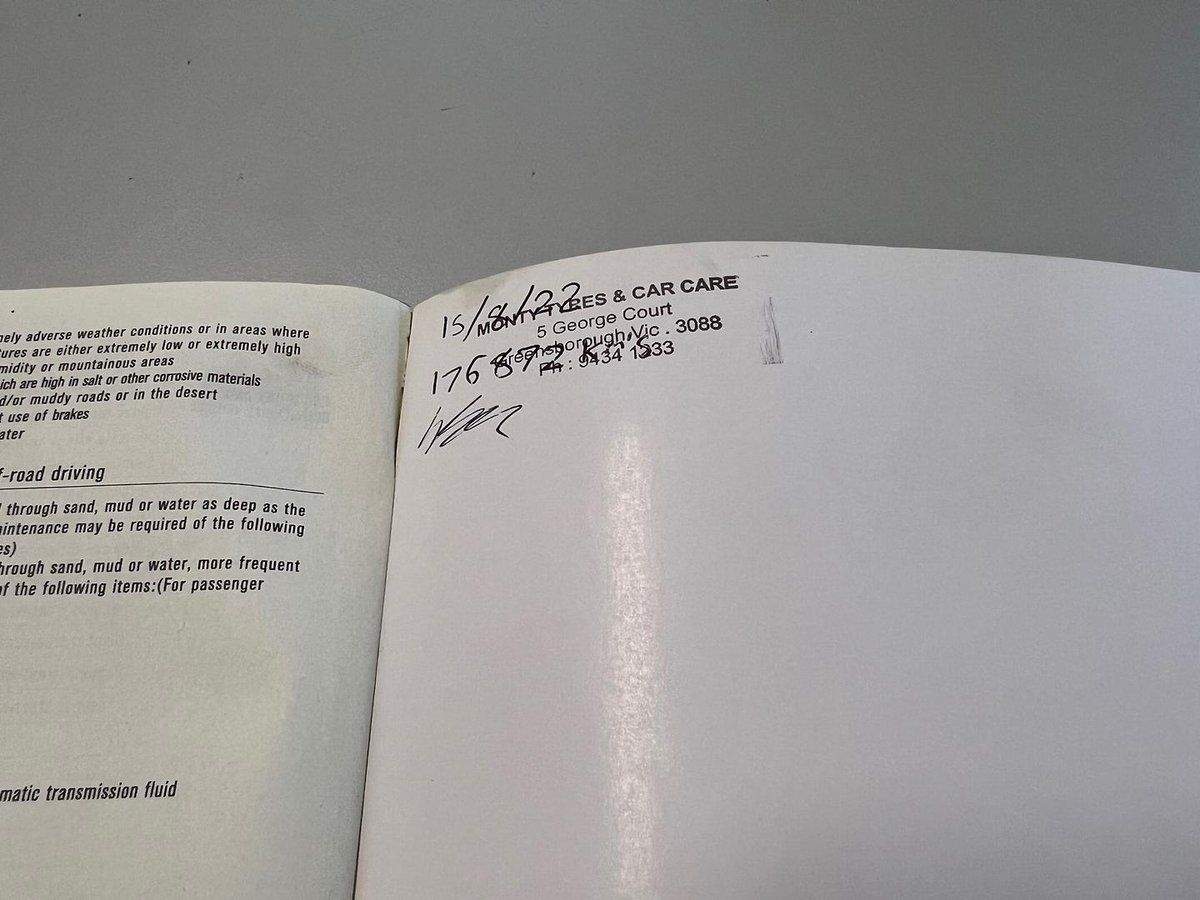 nely adverse weather conditions or in areas where
tures are either extremely low or extremely high
midity or mountainous areas
ich are high in salt or other corrosive materials
d/or muddy roads or in the desert
t use of brakes
ater
f-road driving
l through sand, mud or water as deep as the
aintenance may be required of the following
es)
hrough sand, mud or water, more frequent
of the following items:(For passenger
matic transmission fluid
15/8/22
MONTY TYRES & CAR CARE
5 George Court
Greensborough Vic . 3088
176872 kms
Ph : 9434 1333